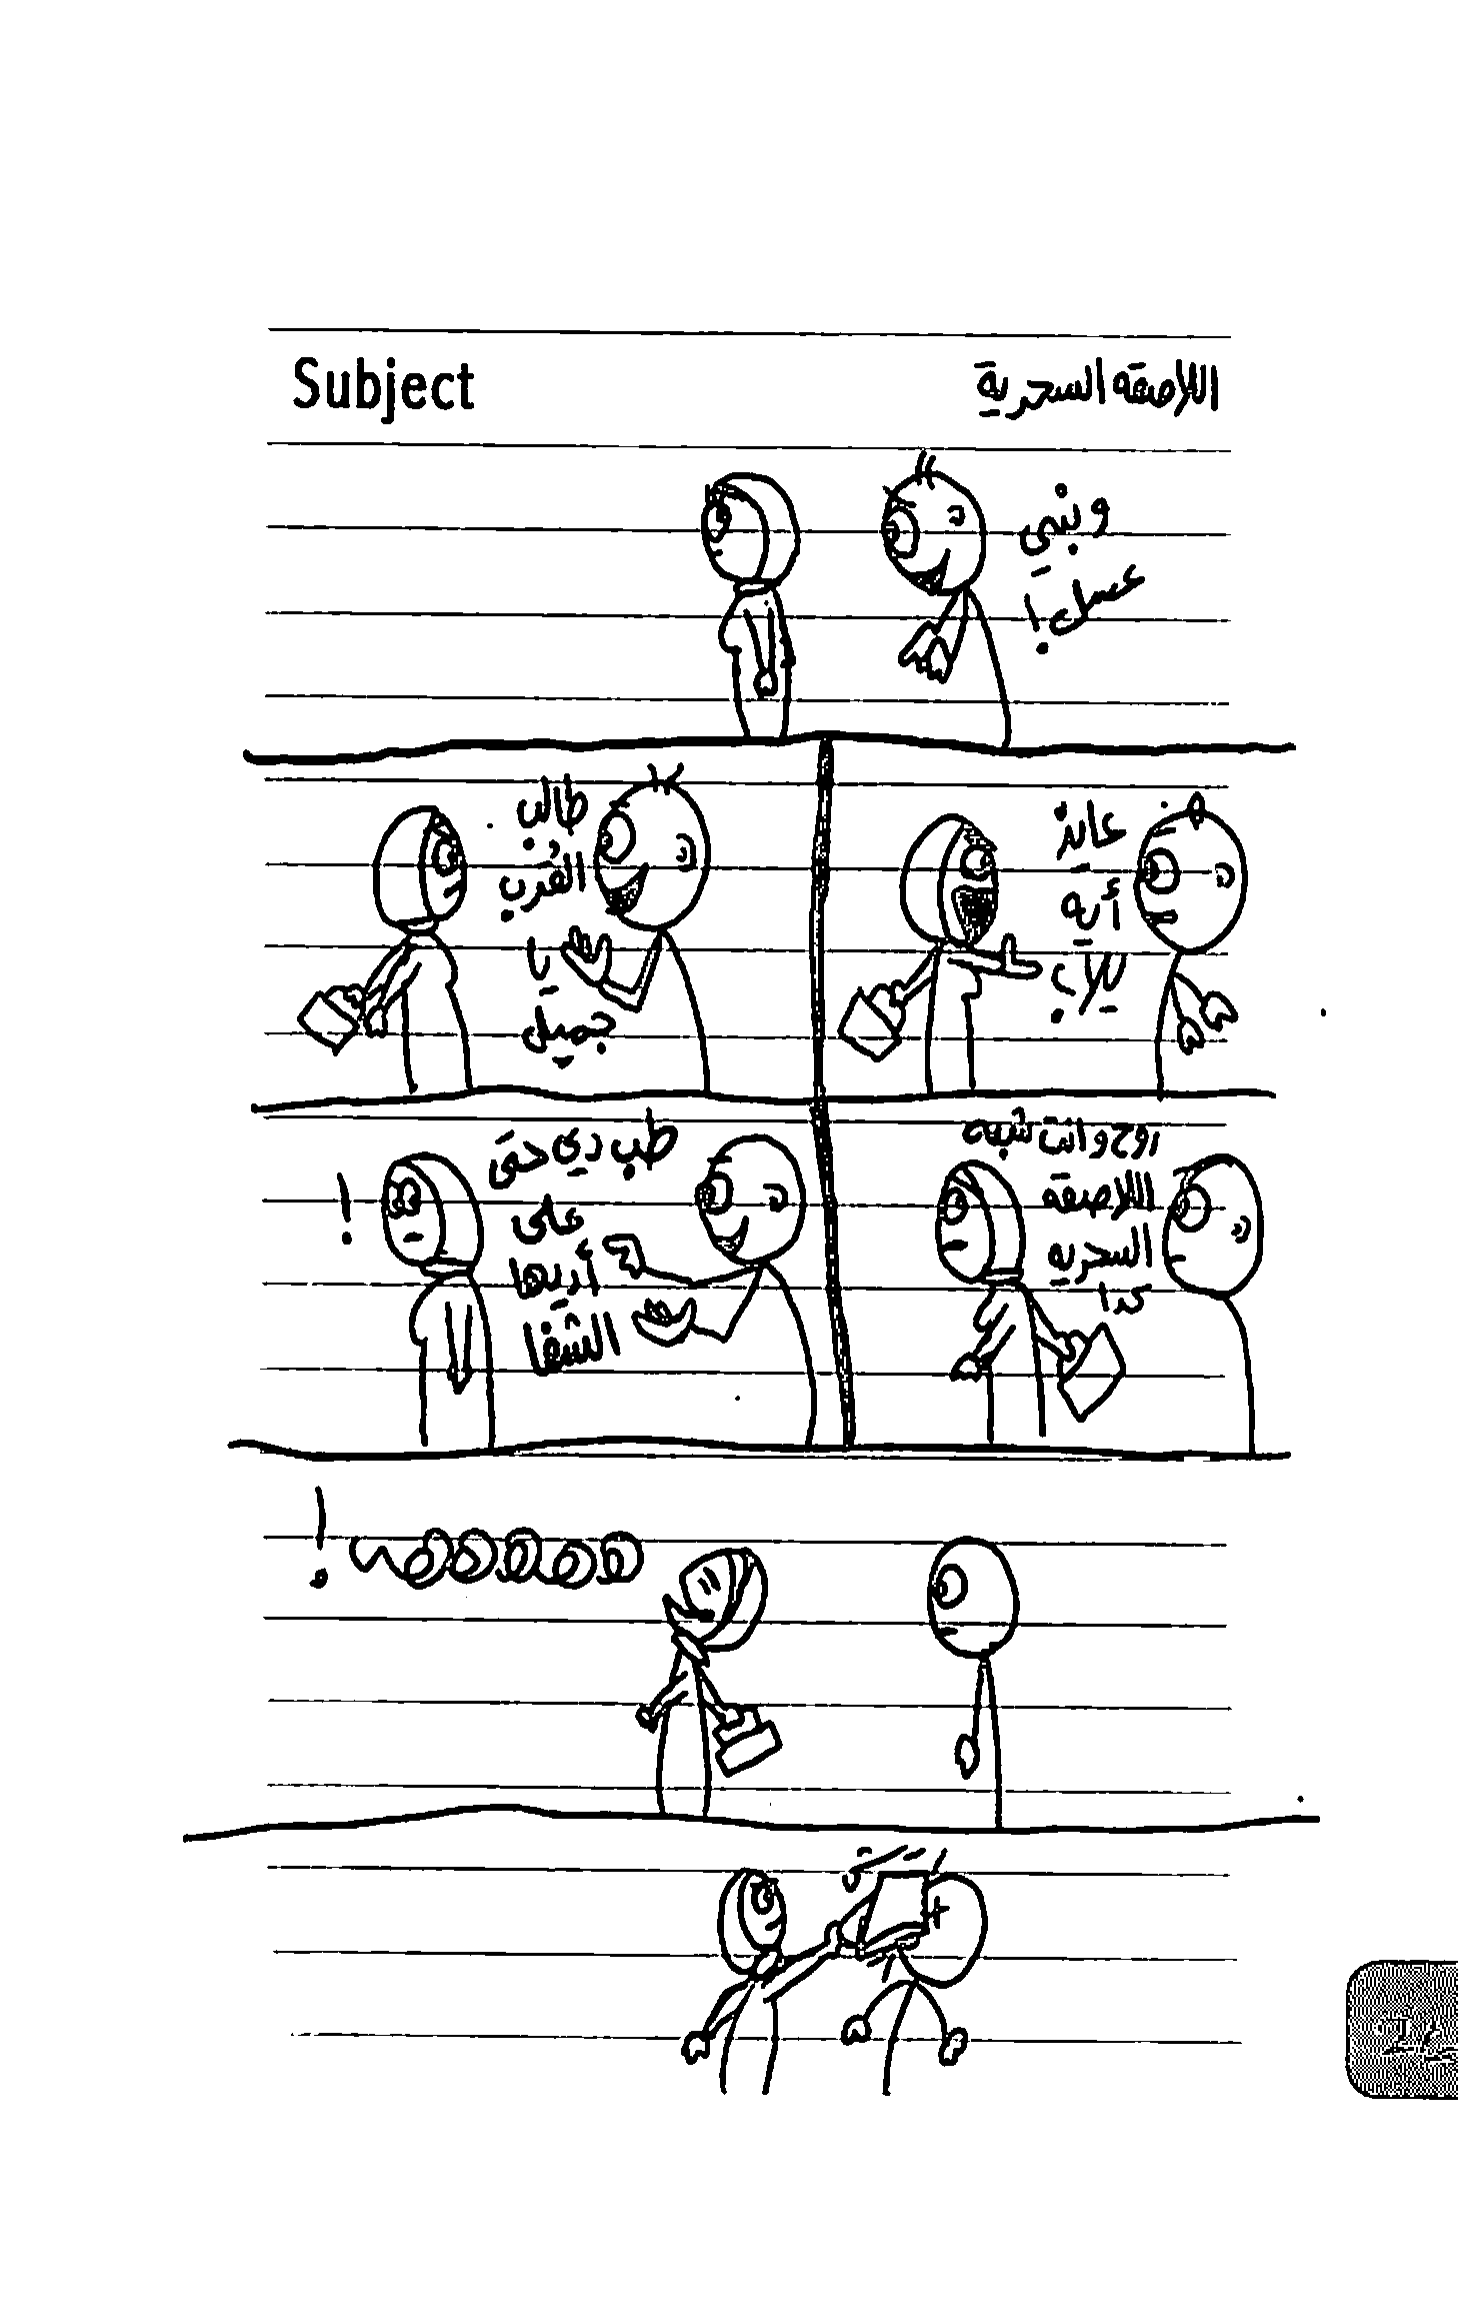 Subject
اللاصقه السحرية
و نبي
عسل!
عايز
أيه
طالب
القرب
يا
جميل
روح وانت شبه
اللاصقه
السحريه
كدا
طب دي حتى
على
أريها
الشفا
!
!